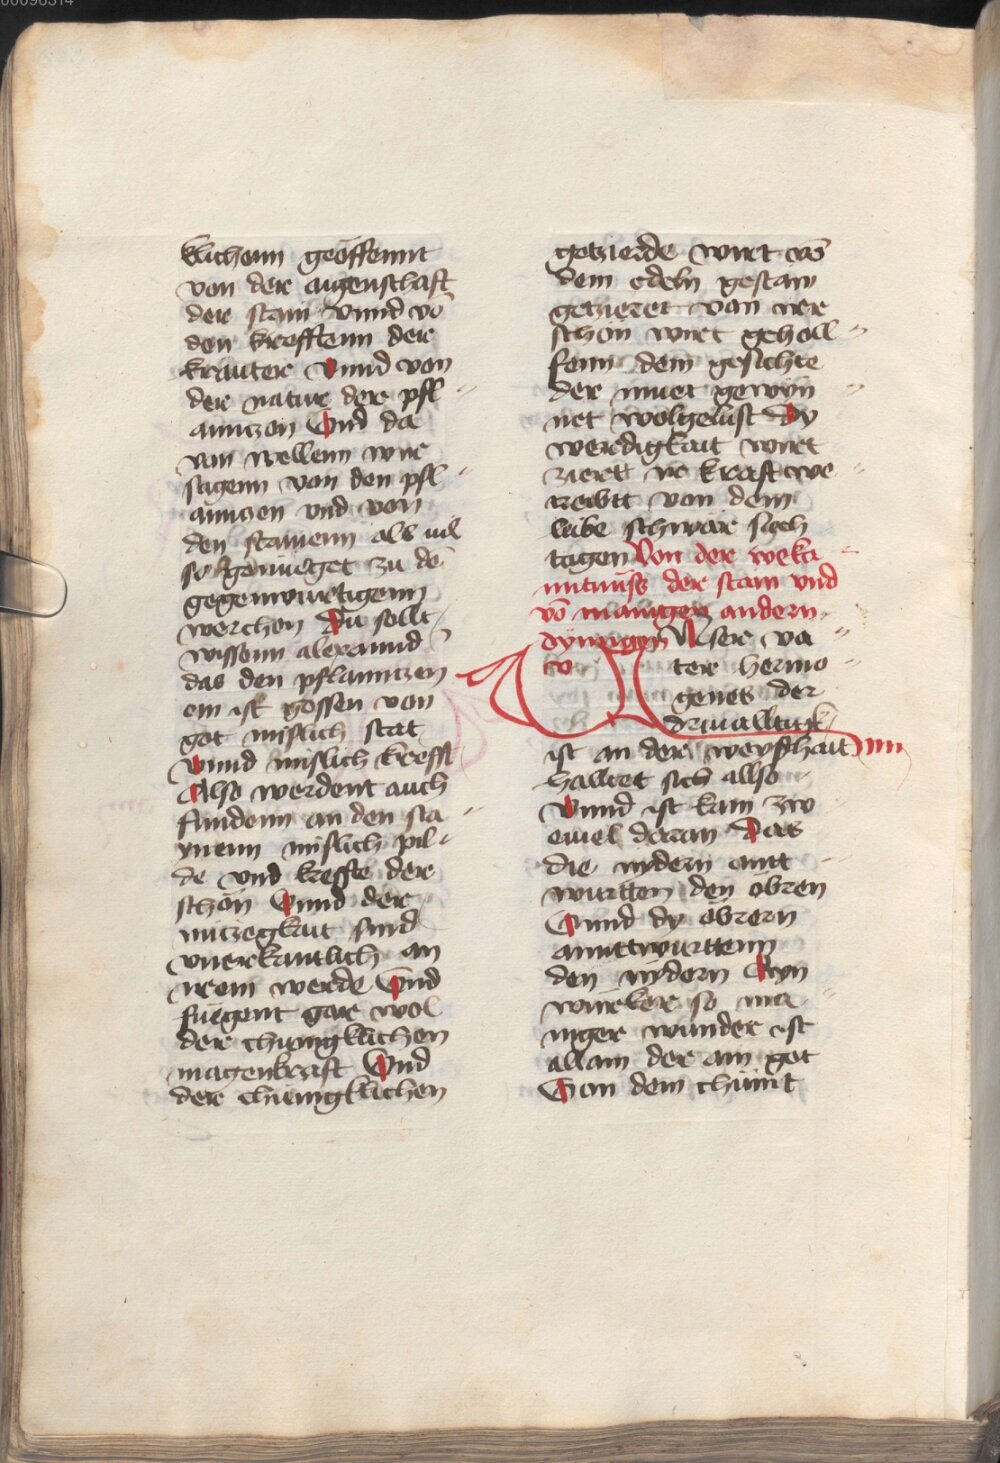 klichenn geoffennt
von der aigenschafft
der stain vnnd vō
den krefftenn der
kräuter vnnd von
der natur der pfl
anntzen Vnd da
von wellenn wir
sagenn von den pfl
anntzen vnd von
den stainenn als uil
so genüeget zu dē
gegenwürtigenn
werchen Du sollt
wissenn alexannd̄
das den pflanntzen
ein ist gossen von
got mislich stat
vnnd mislich krefft
Also werdent auch
fundenn an den sta
ynenn mislich pil
de vnd kreffte der
schön Vnnd der
nutzegkait sind
vnerkantlich an
irem werde Vnd
füegent gar wol
der chünigklichen
magenkraft Vnd
der chünigklichen
getzierde wirt vō
dem edeln gestain
getzieret von irer
schön wirt geholl
fenn dem gesichte
der muet gewyn
net wolgelust Dy
werdigkait wirt
ziert ir kraft we
treibtt von dem
leibe schwär siech
tagen Von der weka
nntnüss der stain vnd
vō manigen andern
dynngen Vnser va
ter hermo
genes der
driualltigk
ist an der weyshait
halltet sich allso
Vnnd ist kain zw
eiuel daran Das
die nydern antt
wurtten den obren
Vnnd dy obrern
anntwurttenn
den nydern Ayn
würker so ma
niger wunder ist
allain der ain got
Von dem chümt